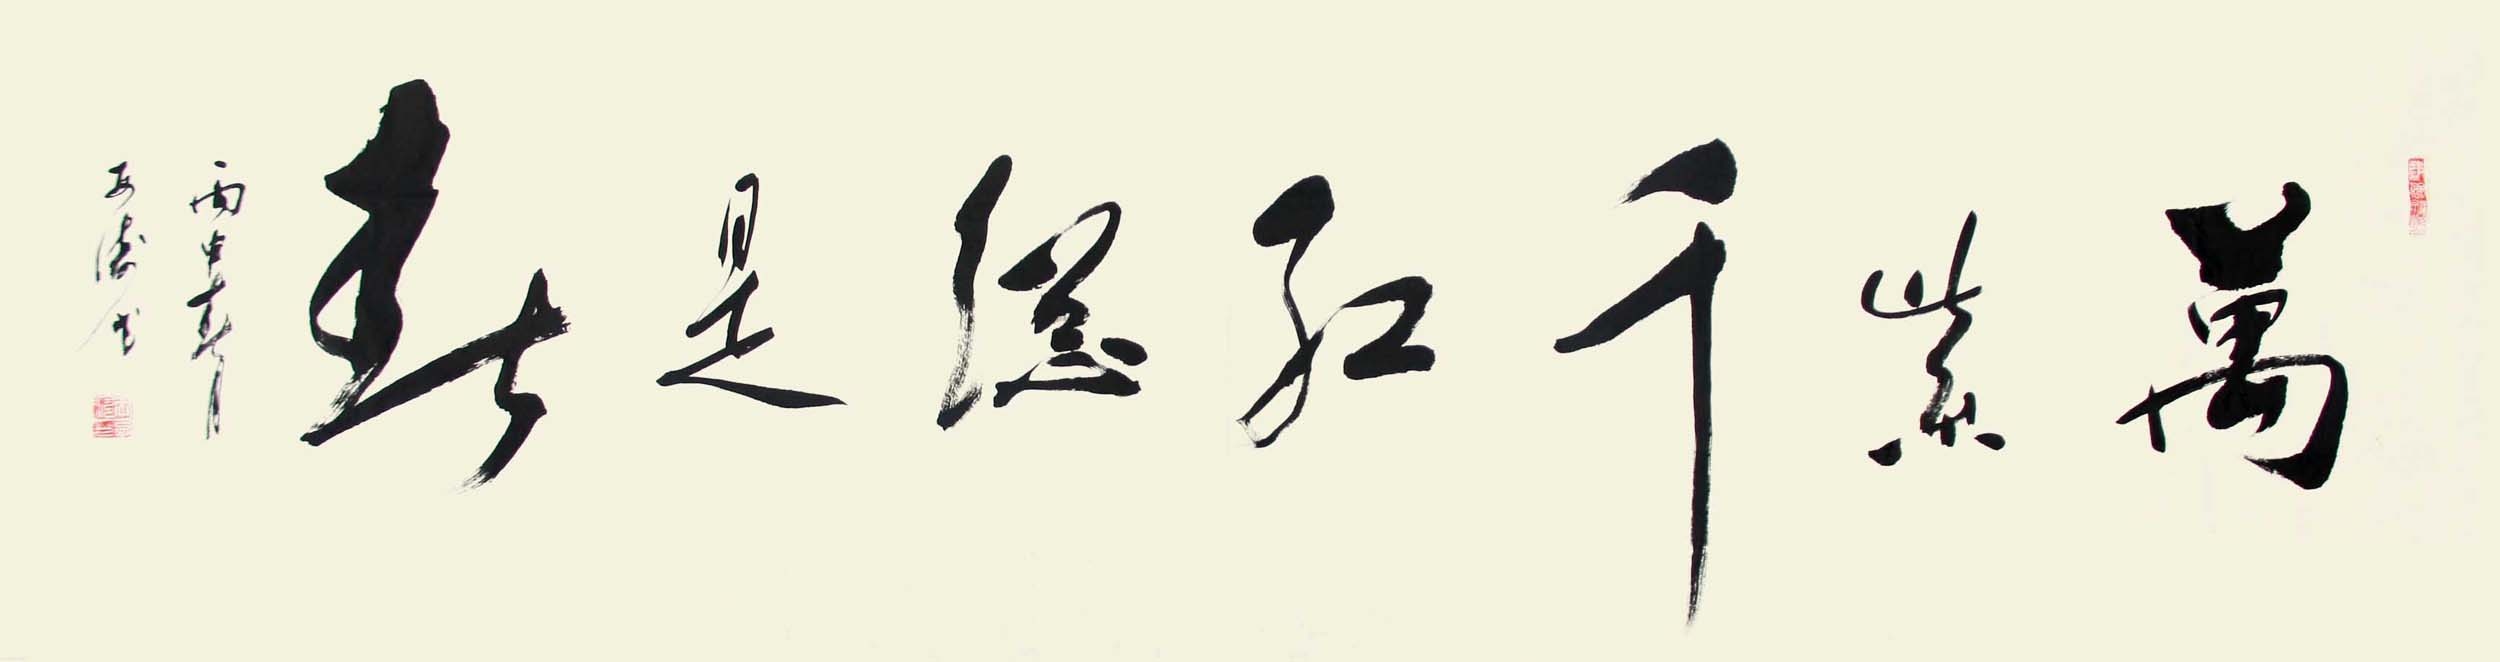 萬紫千紅總是春
丙申春月